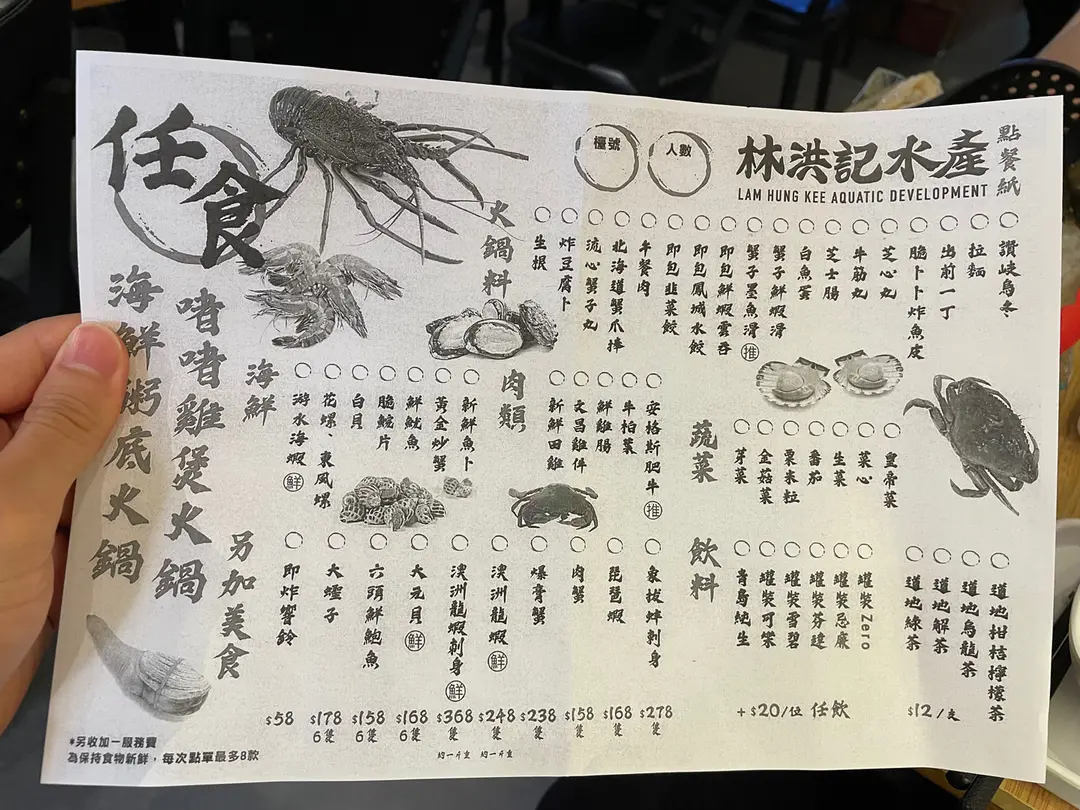 任食
海鮮粥底火鍋
啫啫雞煲火鍋
檯號
人數
林洪記水產
LAM HUNG KEE AQUATIC DEVELOPMENT
點餐紙
火鍋料
生根
炸豆腐卜
流心蟹子丸
北海道蟹爪棒
午餐肉
即包韭菜餃
即包鳳城水餃
即包鮮蝦雲吞
蟹子墨魚滑 推
蟹子鮮蝦滑
白魚蛋
芝士腸
牛筋丸
芝心丸
脆卜卜炸魚皮
出前一丁
拉麵
讚岐烏冬
海鮮
游水海蝦 鮮
花螺、東風螺
白貝
脆鯇片
鮮魷魚
黃金炒蟹
新鮮魚卜
肉類
新鮮田雞
文昌雞件
鮮雞腸
牛柏葉
安格斯肥牛 推
蔬菜
芽菜
金菇菜
粟米粒
番茄
生菜
菜心
皇帝菜
另加美食
即炸響鈴 $58
大蟶子 $178 6隻
六頭鮮鮑魚 $158 6隻
大元貝 鮮 $168 6隻
澳洲龍蝦刺身 鮮 $368 約一斤重
澳洲龍蝦 鮮 $248 約一斤重
爆膏蟹 $238 隻
肉蟹 $158 隻
琵琶蝦 $168 隻
象拔蚌刺身 $278 隻
飲料
青島純生
罐裝可樂
罐裝雪碧
罐裝芬達
罐裝忌廉
罐裝Zero
+$20/位 任飲
道地綠茶
道地解茶
道地烏龍茶
道地柑桔檸檬茶
$12/支
*另收加一服務費
為保持食物新鮮，每次點單最多8款